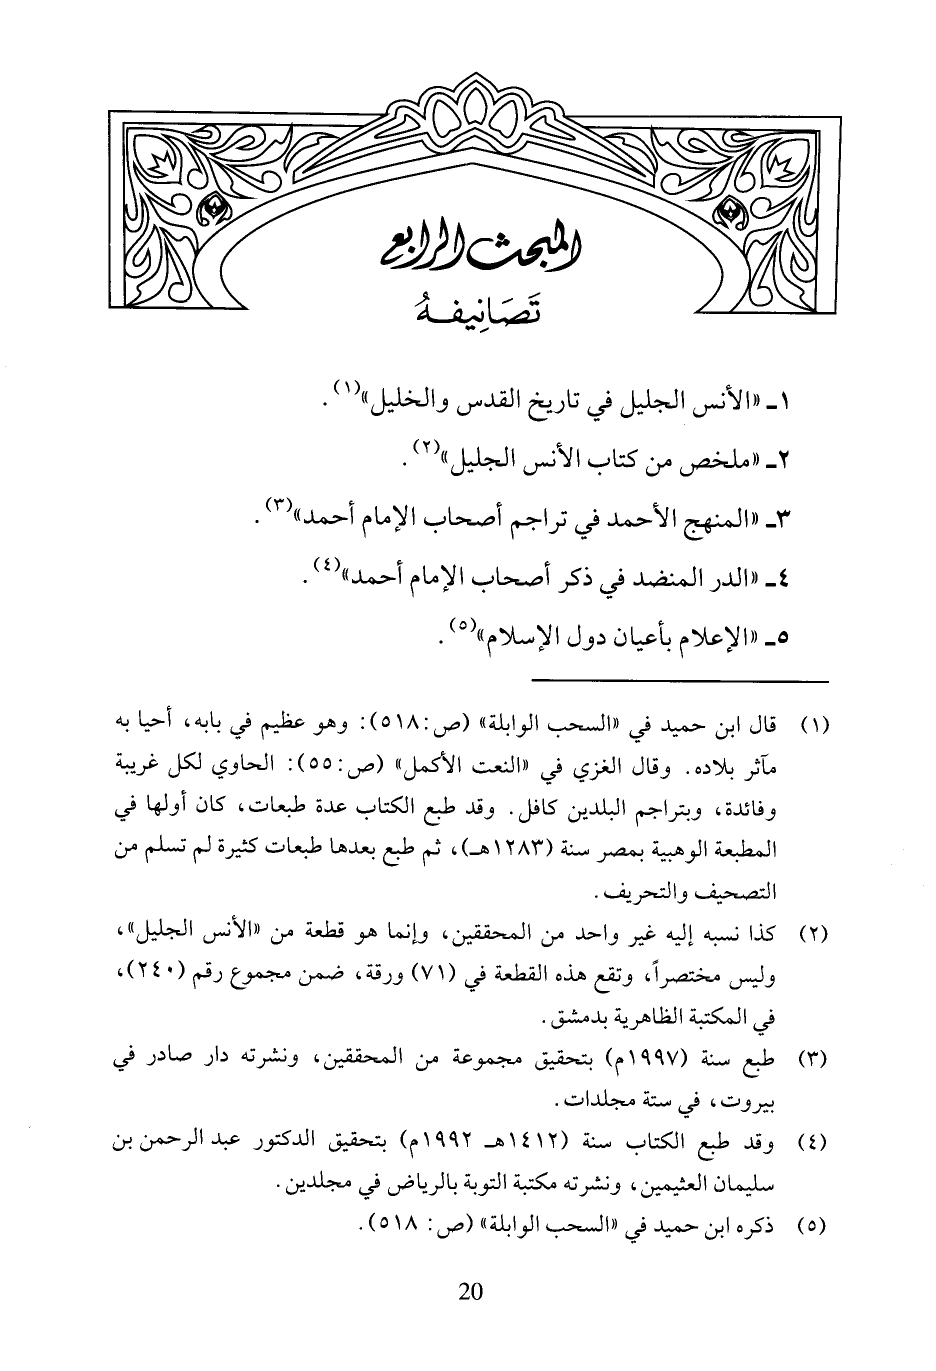 المبحث الرابع
تَصَانِيفهُ
١ـ «الأنس الجليل في تاريخ القدس والخليل»(١).
٢ـ «ملخص من كتاب الأنس الجليل»(٢).
٣ـ «المنهج الأحمد في تراجم أصحاب الإمام أحمد»(٣).
٤ـ «الدر المنضد في ذكر أصحاب الإمام أحمد»(٤).
٥ـ «الإعلام بأعيان دول الإسلام»(٥).
(١) قال ابن حميد في «السحب الوابلة» (ص:٥١٨): وهو عظيم في بابه، أحيا به
مآثر بلاده. وقال الغزي في «النعت الأكمل» (ص:٥٥): الحاوي لكل غريبة
وفائدة، وبتراجم البلدين كافل. وقد طبع الكتاب عدة طبعات، كان أولها في
المطبعة الوهبية بمصر سنة (١٢٨٣هـ)، ثم طبع بعدها طبعات كثيرة لم تسلم من
التصحيف والتحريف.
(٢) كذا نسبه إليه غير واحد من المحققين، وإنما هو قطعة من «الأنس الجليل»،
وليس مختصراً، وتقع هذه القطعة في (٧١) ورقة، ضمن مجموع رقم (٢٤٠)،
في المكتبة الظاهرية بدمشق.
(٣) طبع سنة (١٩٩٧م) بتحقيق مجموعة من المحققين، ونشرته دار صادر في
بيروت، في ستة مجلدات.
(٤) وقد طبع الكتاب سنة (١٤١٢هـ ١٩٩٢م) بتحقيق الدكتور عبد الرحمن بن
سليمان العثيمين، ونشرته مكتبة التوبة بالرياض في مجلدين.
(٥) ذكره ابن حميد في «السحب الوابلة» (ص: ٥١٨).
20